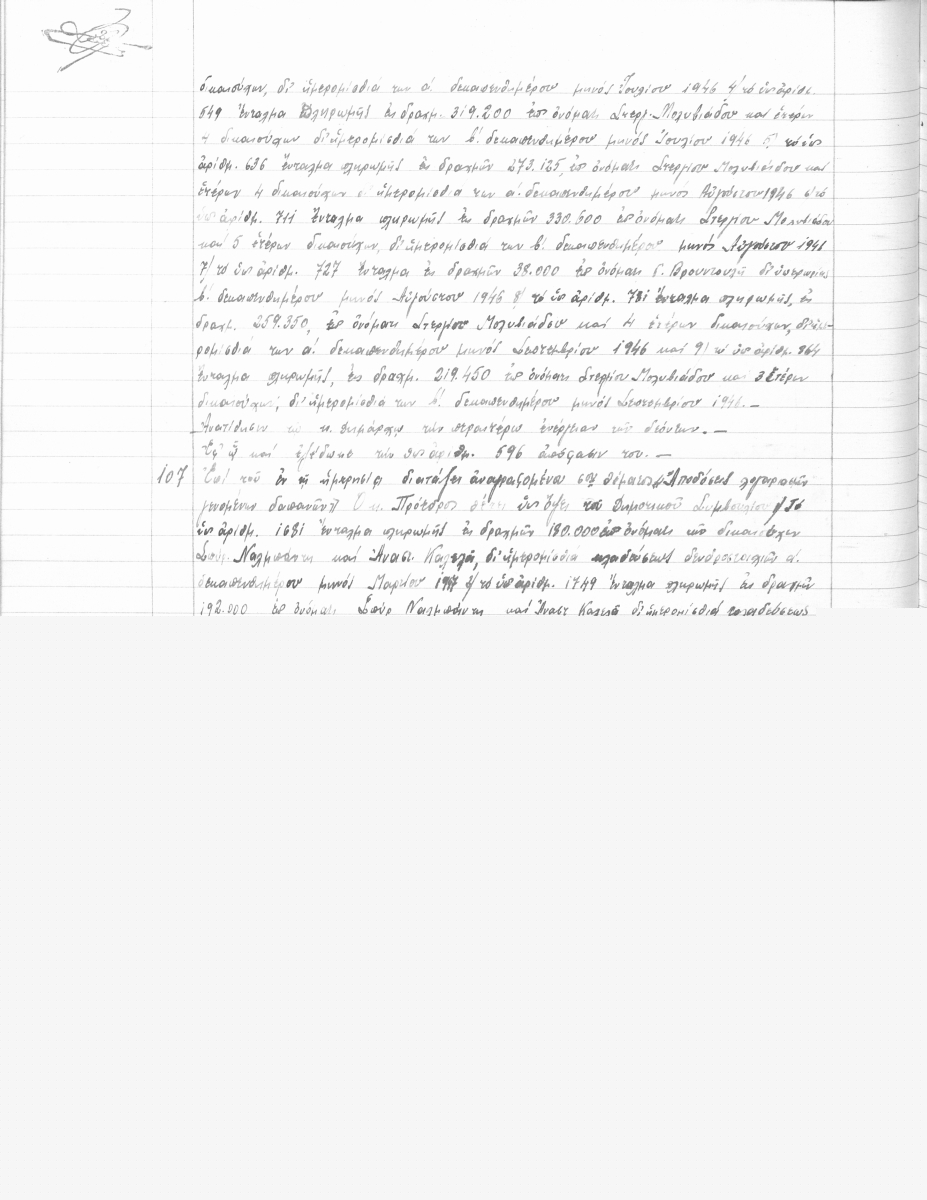 δικαιούχων, δι' ἡμερομίσθια των α'. δεκαπενθημέρου μηνός Ἰουλίου 1946 4/ τό ὑπ' ἀριθ.
549 Ἔνταλμα Πληρωμῆς ἐκ δραχμ. 319.200 ἐπ' ὀνόματι Στεργ. Μολυβιάδου καί ἑτέρων
4 δικαιούχων δι' ἡμερομίσθιά των β'. δεκαπενθημέρου μηνός Ἰουλίου 1946 5/ τό ὑπ'
ἀριθμ. 636 Ἔνταλμα πληρωμῆς ἐκ δραχμῶν 273.125, ἐπ' ὀνόματι Στεργίου Μολυβιάδου καί
ἑτέρων 4 δικαιούχων δι' ἡμερομίσθια των α'. δεκαπενθημέρου μηνός Αὐγούστου 1946 6/ τό
ὑπ' ἀριθμ. 711 Ἔνταλμα πληρωμῆς ἐκ δραχμῶν 330.600 ἐπ' ὀνόματι Στεργίου Μολυβιάδου
καί 5 ἑτέρων δικαιούχων, δι' ἡμερομίσθιά των β'. δεκαπενθημέρου μηνός Αὐγούστου 1946
7/ τό ὑπ' ἀριθμ. 727 Ἔνταλμα ἐκ δραχμῶν 38.000 ἐπ' ὀνόματι Γ. Βρουντουλῆ δι' ὑπερωρίας
β'. δεκαπενθημέρου μηνός Αὐγούστου 1946 8/ τό ὑπ' ἀριθμ. 781 Ἔνταλμα πληρωμῆς, ἐκ
δραχμ. 259.350, ἐπ' ὀνόματι Στεργίου Μολυβιάδου καί 4 ἑτέρων δικαιούχων, δι' ἡμε-
ρομίσθιά των α'. δεκαπενθημέρου μηνός Σεπτεμβρίου 1946 καί 9/ τό ὑπ' ἀριθμ. 864
Ἔνταλμα πληρωμῆς, ἐκ δραχμ. 219.450 ἐπ' ὀνόματι Στεργίου Μολυβιάδου καί 3 ἑτέρων
δικαιούχων, δι' ἡμερομίσθιά των β'. δεκαπενθημέρου μηνός Σεπτεμβρίου 1946.—
Ἀνατίθησιν τῷ κ. Δημάρχῳ τήν περαιτέρω ἐνέργειαν τῶν δεόντων.—
Ἐφ' ᾧ καί ἐξεδόθη ἡ ὑπ' ἀριθμ. 596 ἀπόφασίν του.—
107 Ἐπί τοῦ ἐν τῇ ἡμερησίᾳ διατάξει ἀναγραφομένου 6ου θέματος "Ἀποδόσεις λογαριασμῶν
γενομένων δαπανῶν" Ὁ κ. Πρόεδρος θέτει ὑπ' ὄψει τοῦ Δημοτικοῦ Συμβουλίου 1/ Τό
ὑπ' ἀριθμ. 1681 Ἔνταλμα πληρωμῆς ἐκ δραχμῶν 180.000 ἐπ' ὀνόματι τῶν δικαιούχων
Σπύρ. Ναλμπάντη καί Ἀναστ. Καλελῆ, δι' ἡμερομίσθια κλαδεύσεως δενδροστοιχιῶν α'.
δεκαπενθημέρου μηνός Μαρτίου 1947 2/ τό ὑπ' ἀριθμ. 1749 Ἔνταλμα πληρωμῆς ἐκ δραχμῶν
192.000 ἐπ' ὀνόματι Σπύρ Ναλμπάντη καί Ἀναστ Καλελῆ δι' ἡμερομίσθια κλαδεύσεως